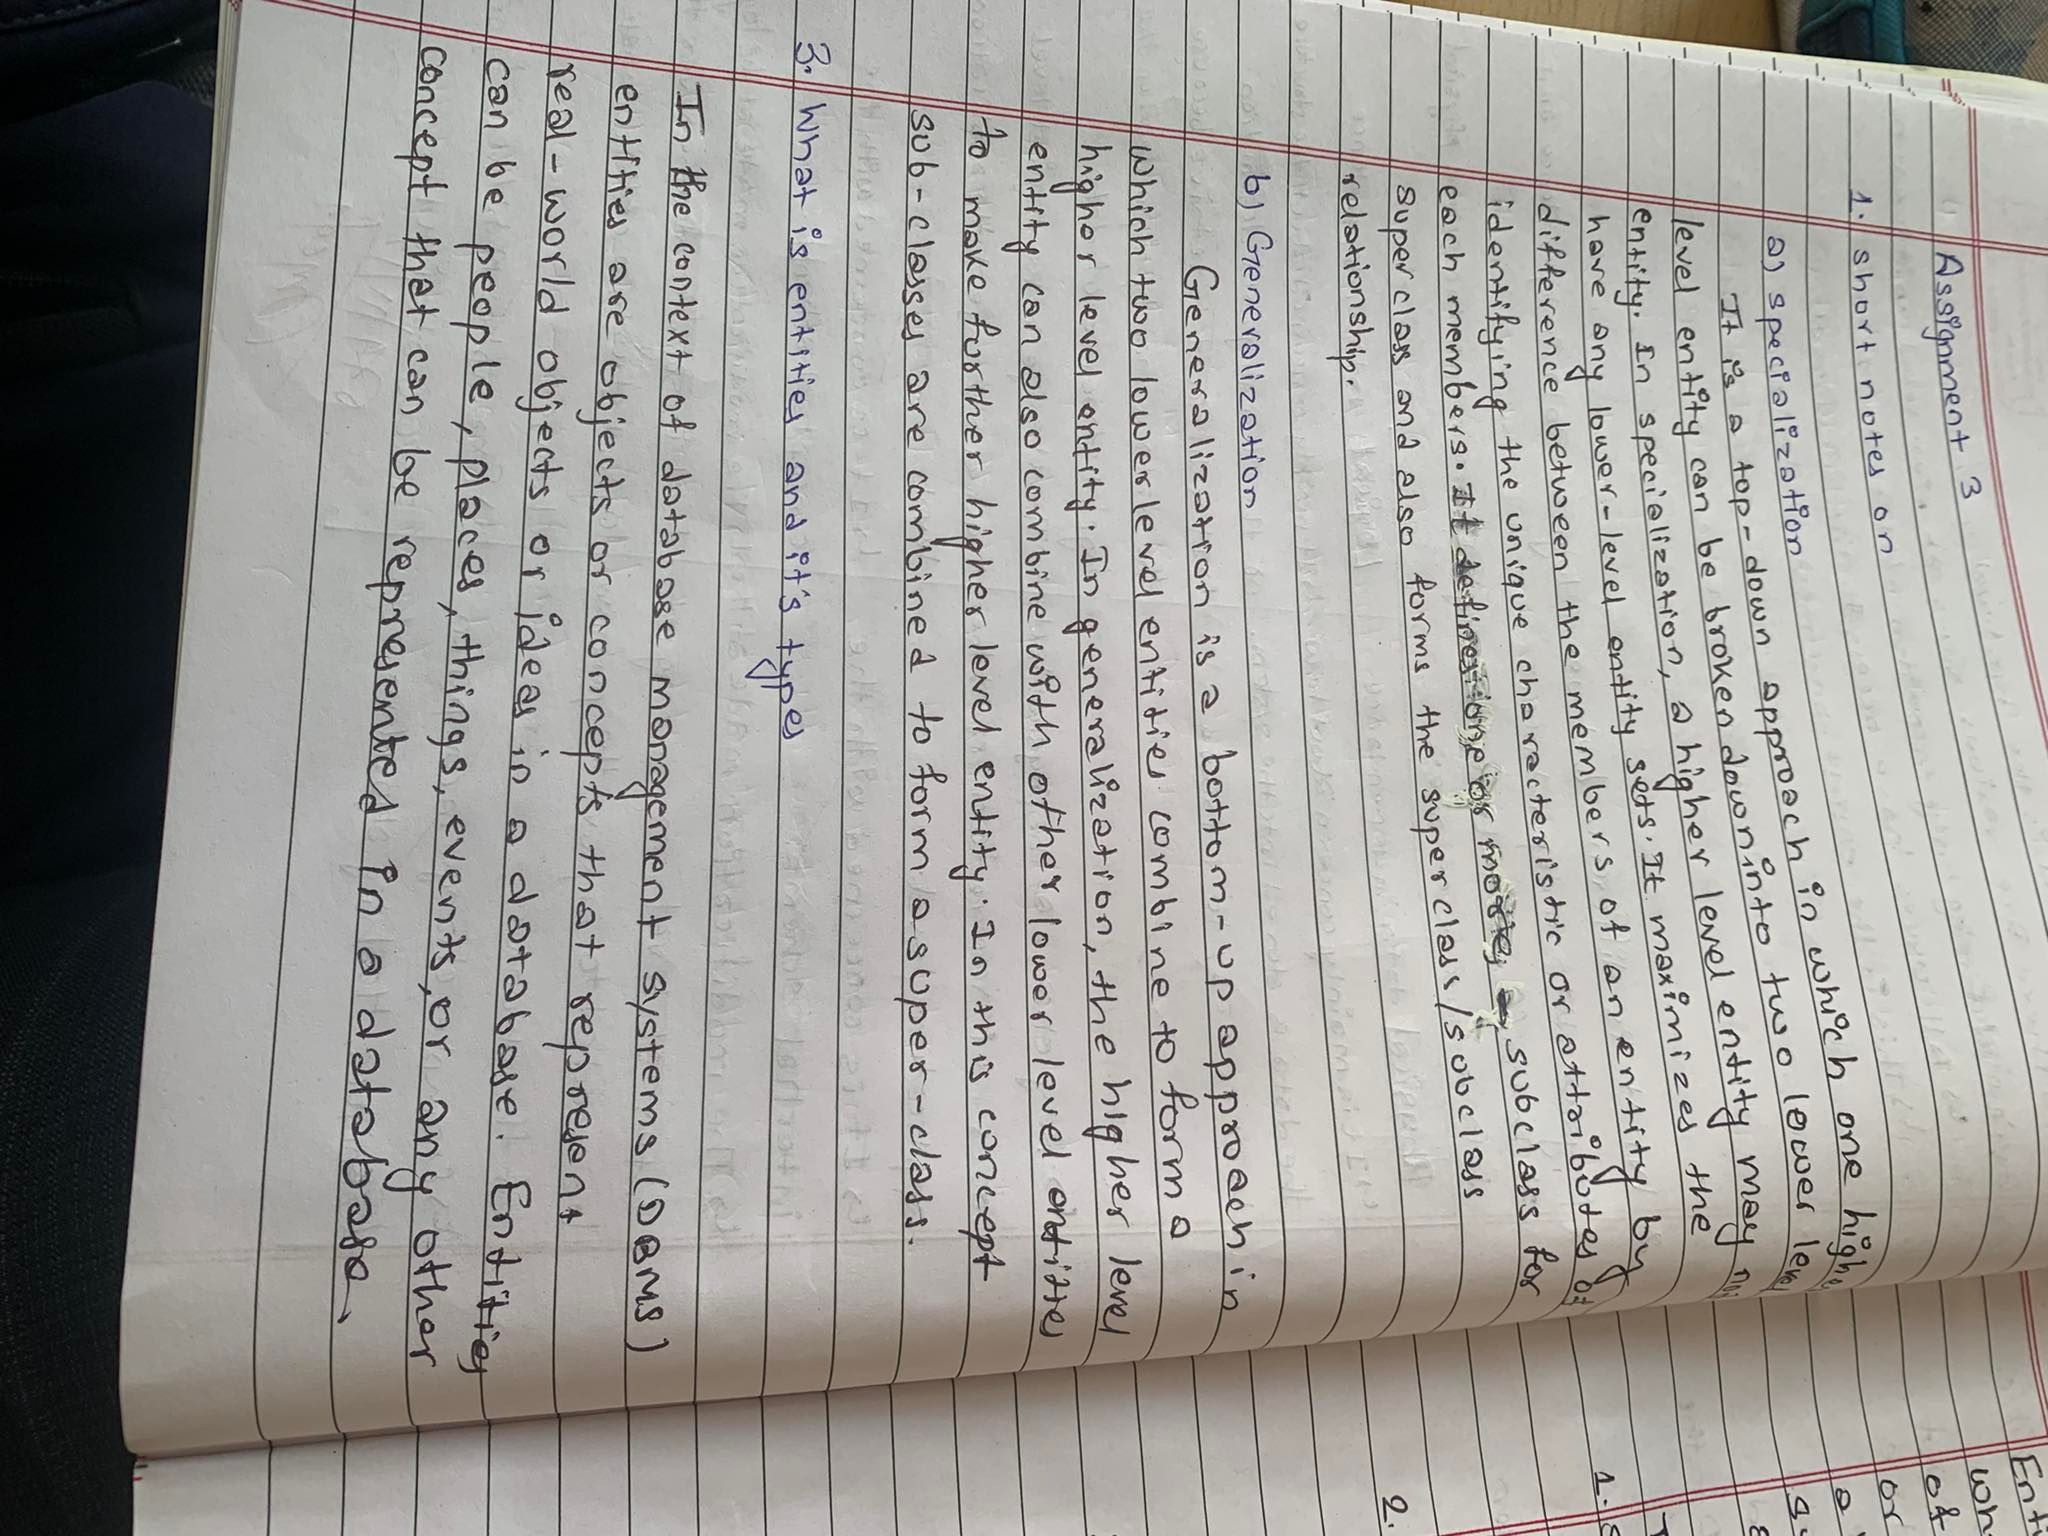 Assignment 3
1. short notes on
a) specialization
It is a top-down approach in which one highe
level entity can be broken down into two lower level
entity. In specialization, a higher level entity may not
have any lower-level entity sets. It maximizes the
difference between the members of an entity by
identifying the unique characteristic or attributes of
each members. It defines one or more subclass for
super class and also forms the super class/subclass
relationship.
b) Generalization
Generalization is a bottom-up approach in
which two lower level entities combine to form a
higher level entity. In generalization, the higher level
entity can also combine with other lower level entities
to make further higher level entity. In this concept
sub-classes are combined to form a super-class.
3. What is entities and it's types
In the context of database management systems (DBMS)
entities are objects or concepts that represent
real-world objects or ideas in a database. Entities
can be people, places, things, events, or any other
concept that can be represented in a database.
Enti
wh
of
or
a
1. S
2.